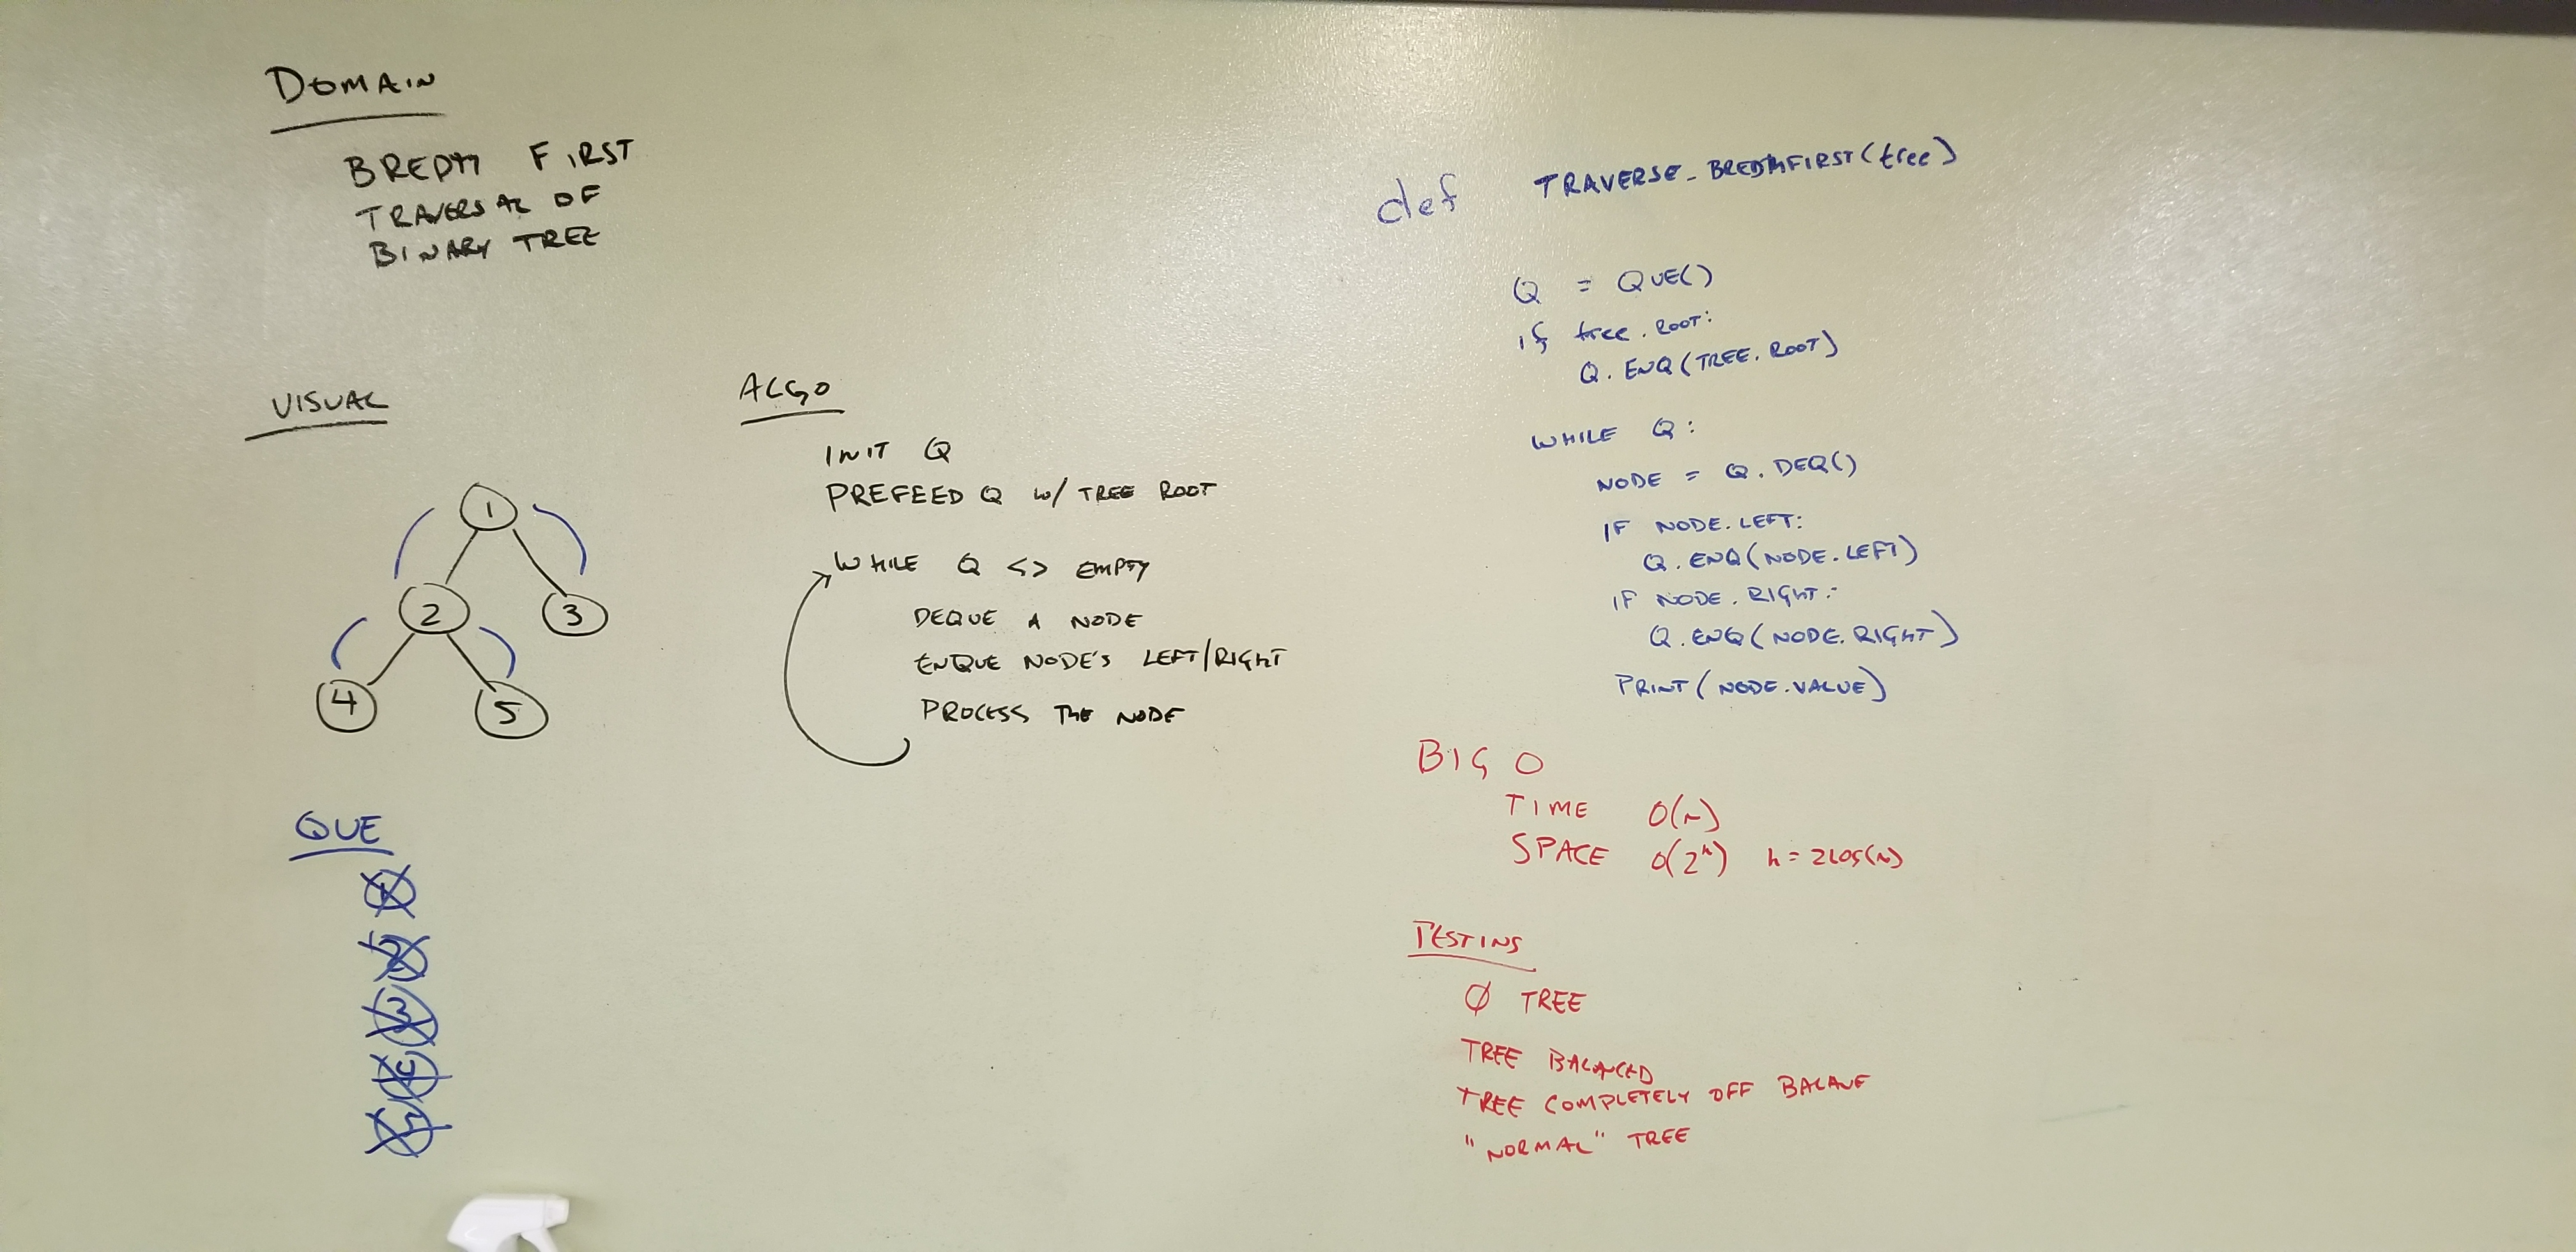 DOMAIN
BREDTH FIRST
TRAVERSAL OF
BINARY TREE
VISUAL
1
2 3
4 5
QUE
1
2
3
4
5
ALGO
INIT Q
PREFEED Q W/ TREE ROOT
WHILE Q <> EMPTY
DEQUE A NODE
ENQUE NODE'S LEFT/RIGHT
PROCESS THE NODE
def TRAVERSE_BREDTHFIRST(tree)
Q = QUE()
if tree.ROOT:
Q.ENQ(TREE.ROOT)
WHILE Q:
NODE = Q.DEQ()
IF NODE.LEFT:
Q.ENQ(NODE.LEFT)
IF NODE.RIGHT:
Q.ENQ(NODE.RIGHT)
PRINT(NODE.VALUE)
BIG O
TIME O(N)
SPACE O(2^h) h = 2LOG(N)
TESTING
Ø TREE
TREE BALANCED
TREE COMPLETELY OFF BALANE
"NORMAL" TREE